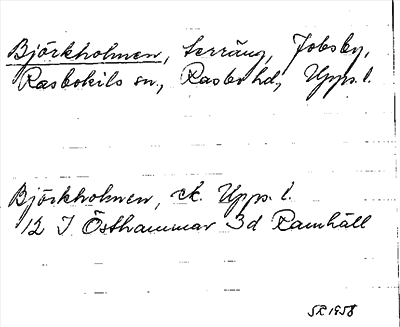 Björkholmen, terräng, Jobsby,
Rasbokils sn, Rasbo hd, Upps. l.
Björkholmen, ek. Upps. l.
12 I Östhammar 3d Ramhäll
SR 1958